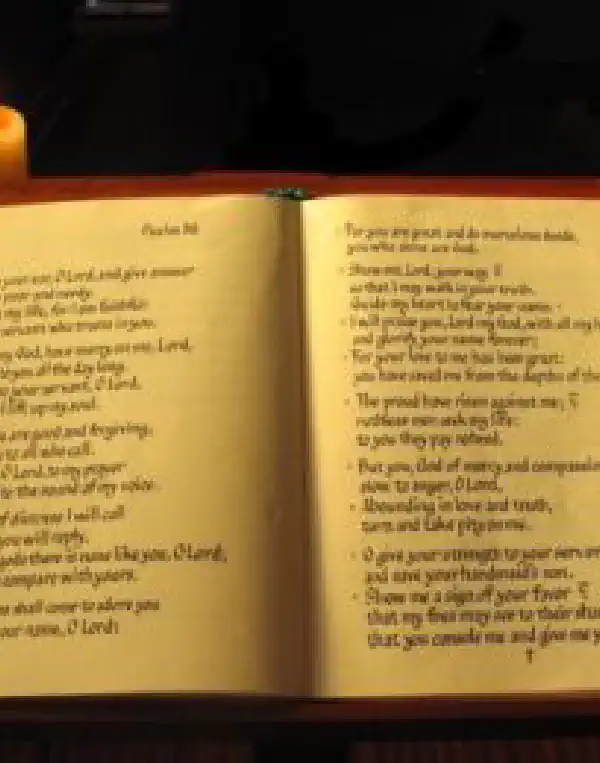 Psalm 86
your ear, O Lord, and give answer
poor and needy.
my life, for I am faithful:
servant who trusts in you.
my God, have mercy on me, Lord,
to you all the day long.
your servant, O Lord,
I lift up my soul.
are good and forgiving,
to all who call.
O Lord, to my prayer
to the sound of my voice.
of distress I will call
you will reply.
gods there is none like you, O Lord;
compare with yours.
shall come to adore you
your name, O Lord:
For you are great and do marvelous deeds,
you who alone are God.
Show me, Lord, your way
so that I may walk in your truth.
Guide my heart to fear your name.
I will praise you, Lord my God, with all my
and glorify your name forever;
For your love to me has been great:
you have saved me from the depths of the
The proud have risen against me;
ruthless men seek my life:
to you they pay no heed.
But you, God of mercy and compassion
slow to anger, O Lord,
Abounding in love and truth,
turn and take pity on me.
O give your strength to your
and save your handmaid's son.
Show me a sign of your favor
that my foes may see to their
that you console me and give me